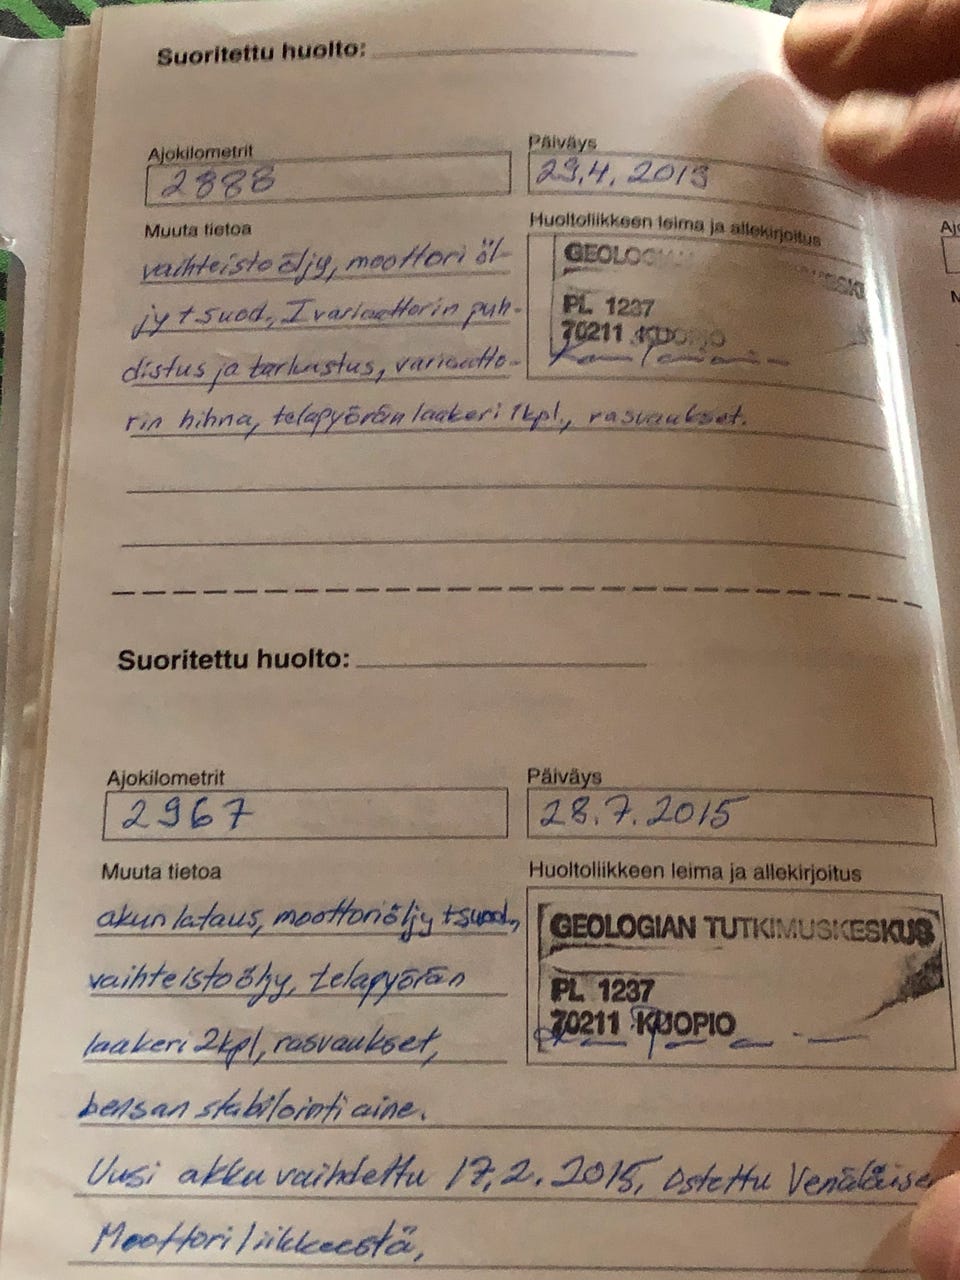 Suoritettu huolto:
Ajokilometrit
2888
Päiväys
29.4.2013
Muuta tietoa
vaihteistoöljy, moottoriöl-
jy + suod., I variaattorin puh-
distus ja tarkastus, variaatto-
rin hihna, telapyörän laakeri 1kpl., rasvaukset.
Huoltoliikkeen leima ja allekirjoitus
PL 1237
70211 KUOPIO
Suoritettu huolto:
Ajokilometrit
2967
Päiväys
28.7.2015
Muuta tietoa
akun lataus, moottoriöljy + suod.,
vaihteistoöljy, telapyörän
laakeri 2kpl, rasvaukset,
bensan stabilointiaine.
Uusi akku vaihdettu 17.2.2015, Ostettu
Moottoriliikkeestä,
Huoltoliikkeen leima ja allekirjoitus
GEOLOGIAN TUTKIMUSKESKUS
PL 1237
70211 KUOPIO